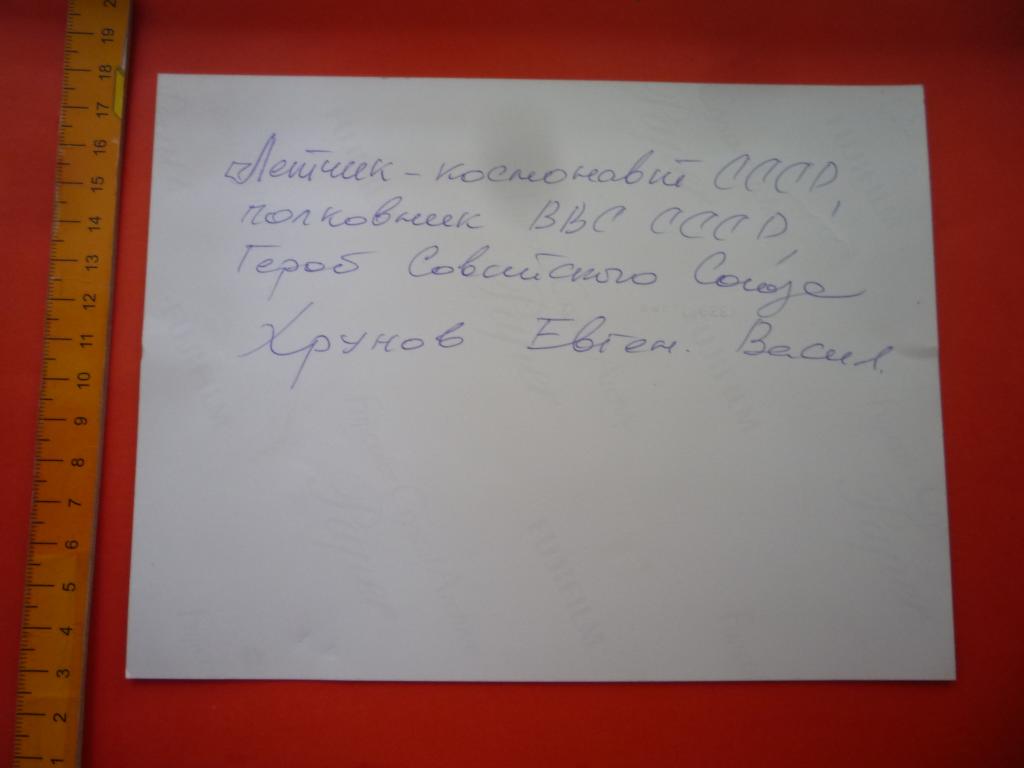 Летчик - космонавт СССР,
полковник ВВС СССР,
Герой Советского Союза
Хрунов Евген. Васил.
19
18
17
16
15
14
13
12
11
10
9
8
7
6
5
4
3
2
1